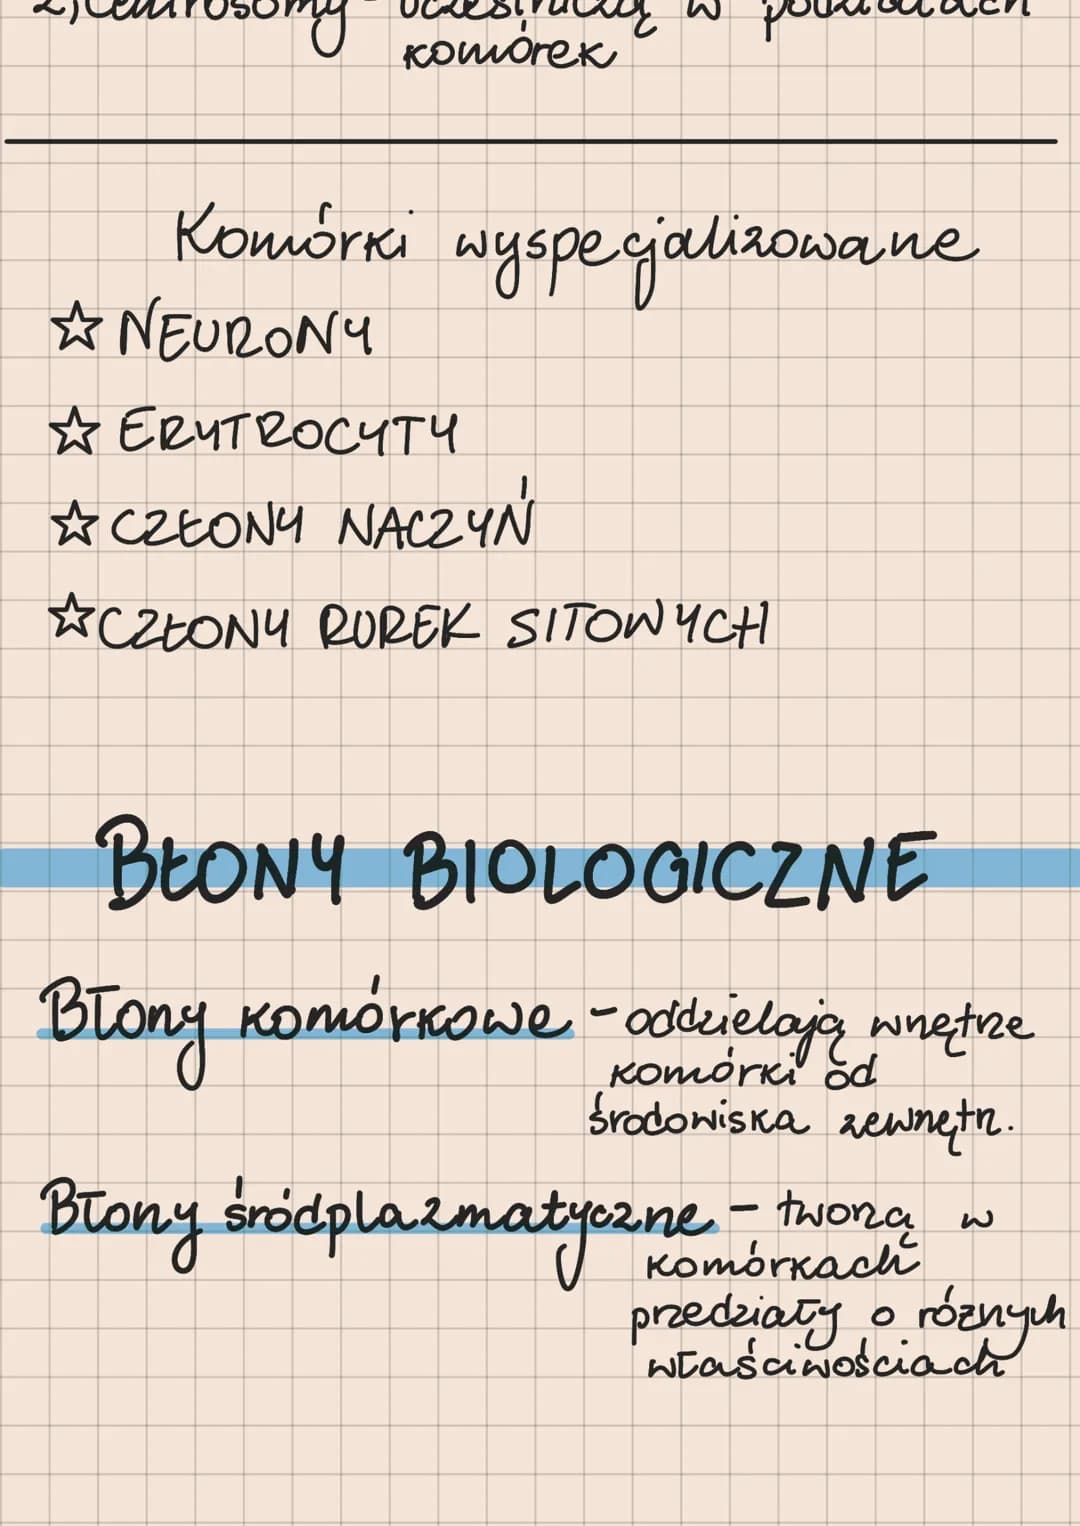 2) Centrosomy - uczestniczą w podziałach
komórek
Komórki wyspecjalizowane
☆ NEURONY
☆ ERYTROCYTY
☆ CZŁONY NACZYŃ
☆ CZŁONY RUREK SITOWYCH
BŁONY BIOLOGICZNE
Błony komórkowe - oddzielają wnętrze
komórki od
środowiska zewnętrz.
Błony śródplazmatyczne - tworzą w
komórkach
przedziały o różnych
właściwościach